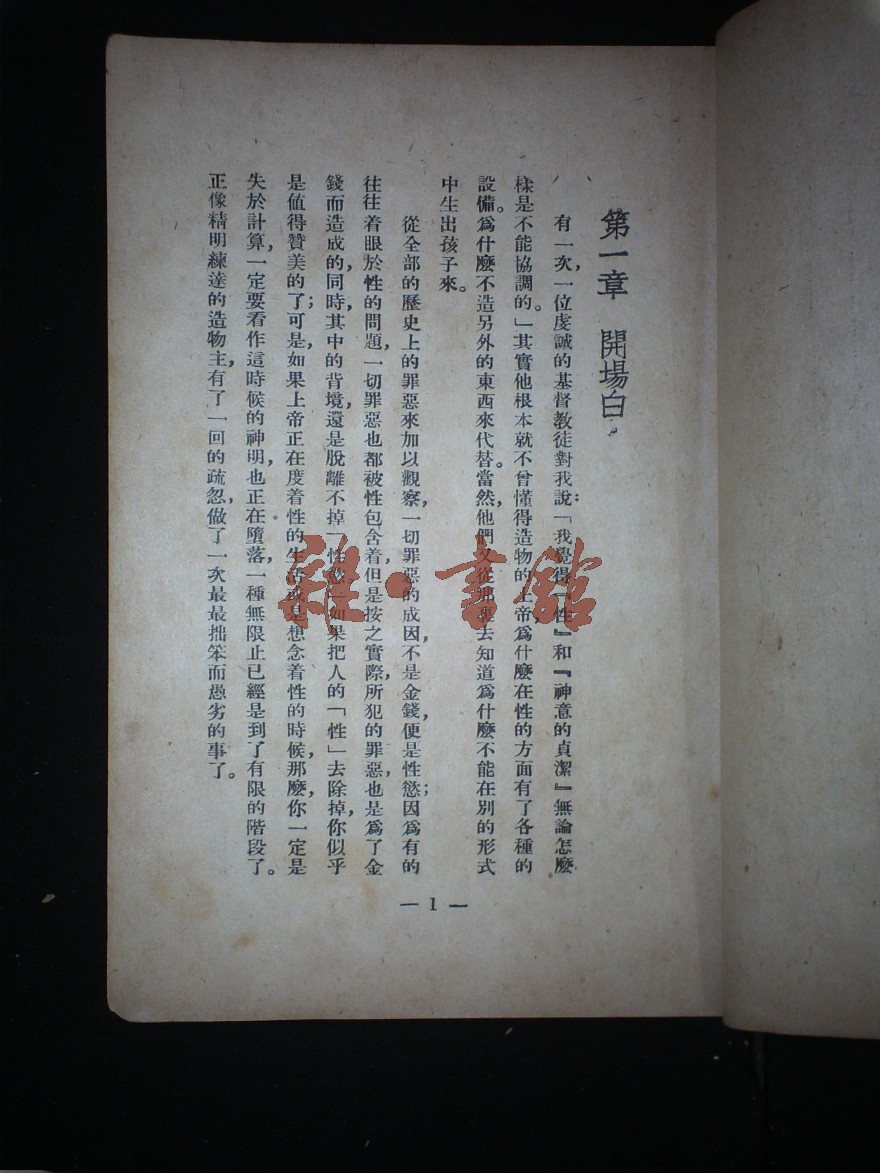 第一章　開場白
有一次，一位虔誠的基督教徒對我說：「我覺得『性』和『神意的貞潔』無論怎麼
樣是不能協調的。」其實他根本就不曾懂得造物的上帝，爲什麼在性的方面有了各種的
設備。爲什麼不造另外的東西來代替。當然，他們又從那裏去知道爲什麼不能在別的形式
中生出孩子來。
從全部的歷史上的罪惡來加以觀察，一切罪惡的成因，不是金錢，便是性慾；因爲有的
往往着眼於性的問題，一切罪惡也都被性包含着，但是按之實際，所犯的罪惡，也是爲了金
錢而造成的，同時，其中的背境，還是脫離不掉「性慾」如果把人的「性」去除掉，你似乎
是值得贊美的了；可是，如果上帝正在度着性的生活或是想念着性的時候，那麼，你一定是
失於計算，一定要看作這時候的神明，也正在墮落，一種無限止已經是到了有限的階段了。
正像精明練達的造物主，有了一回的疏忽，做了一次最最拙笨而愚劣的事了。
— 1 —
雜·書館